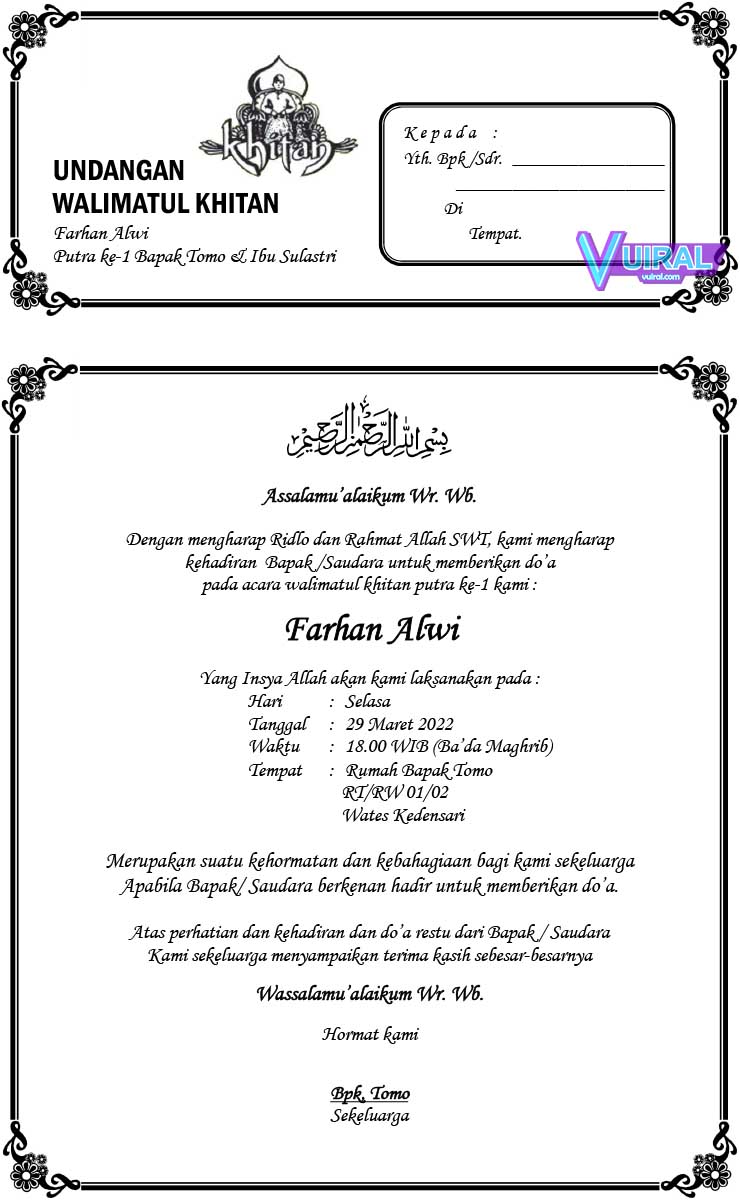 khitan
UNDANGAN
WALIMATUL KHITAN
Farhan Alwi
Putra ke-1 Bapak Tomo & Ibu Sulastri
Kepada :
Yth. Bpk /Sdr. ____________________
____________________
Di
Tempat.
VUIRAL
vuiral.com
بِسْمِ اللهِ الرَّحْمٰنِ الرَّحِيْمِ
Assalamu'alaikum Wr. Wb.
Dengan mengharap Ridlo dan Rahmat Allah SWT, kami mengharap
kehadiran Bapak /Saudara untuk memberikan do'a
pada acara walimatul khitan putra ke-1 kami :
Farhan Alwi
Yang Insya Allah akan kami laksanakan pada :
Hari : Selasa
Tanggal : 29 Maret 2022
Waktu : 18.00 WIB (Ba'da Maghrib)
Tempat : Rumah Bapak Tomo
RT/RW 01/02
Wates Kedensari
Merupakan suatu kehormatan dan kebahagiaan bagi kami sekeluarga
Apabila Bapak/ Saudara berkenan hadir untuk memberikan do'a.
Atas perhatian dan kehadiran dan do'a restu dari Bapak / Saudara
Kami sekeluarga menyampaikan terima kasih sebesar-besarnya
Wassalamu'alaikum Wr. Wb.
Hormat kami
Bpk. Tomo
Sekeluarga